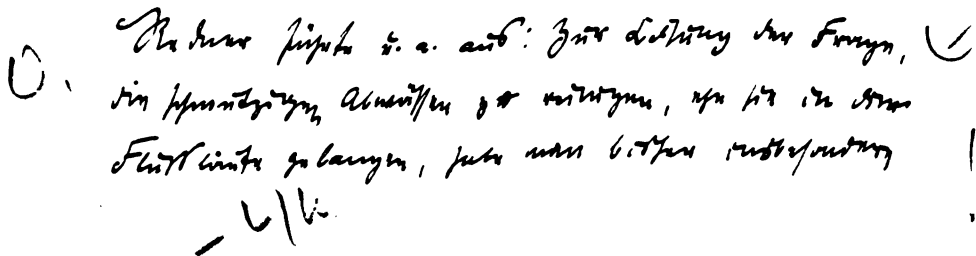 Redner führte u. a. aus: Zur Lösung der Frage,
die schmutzigen Abwässer zu reinigen, ehe sie in die
Flussläufe gelangen, habe man bisher insbesondere